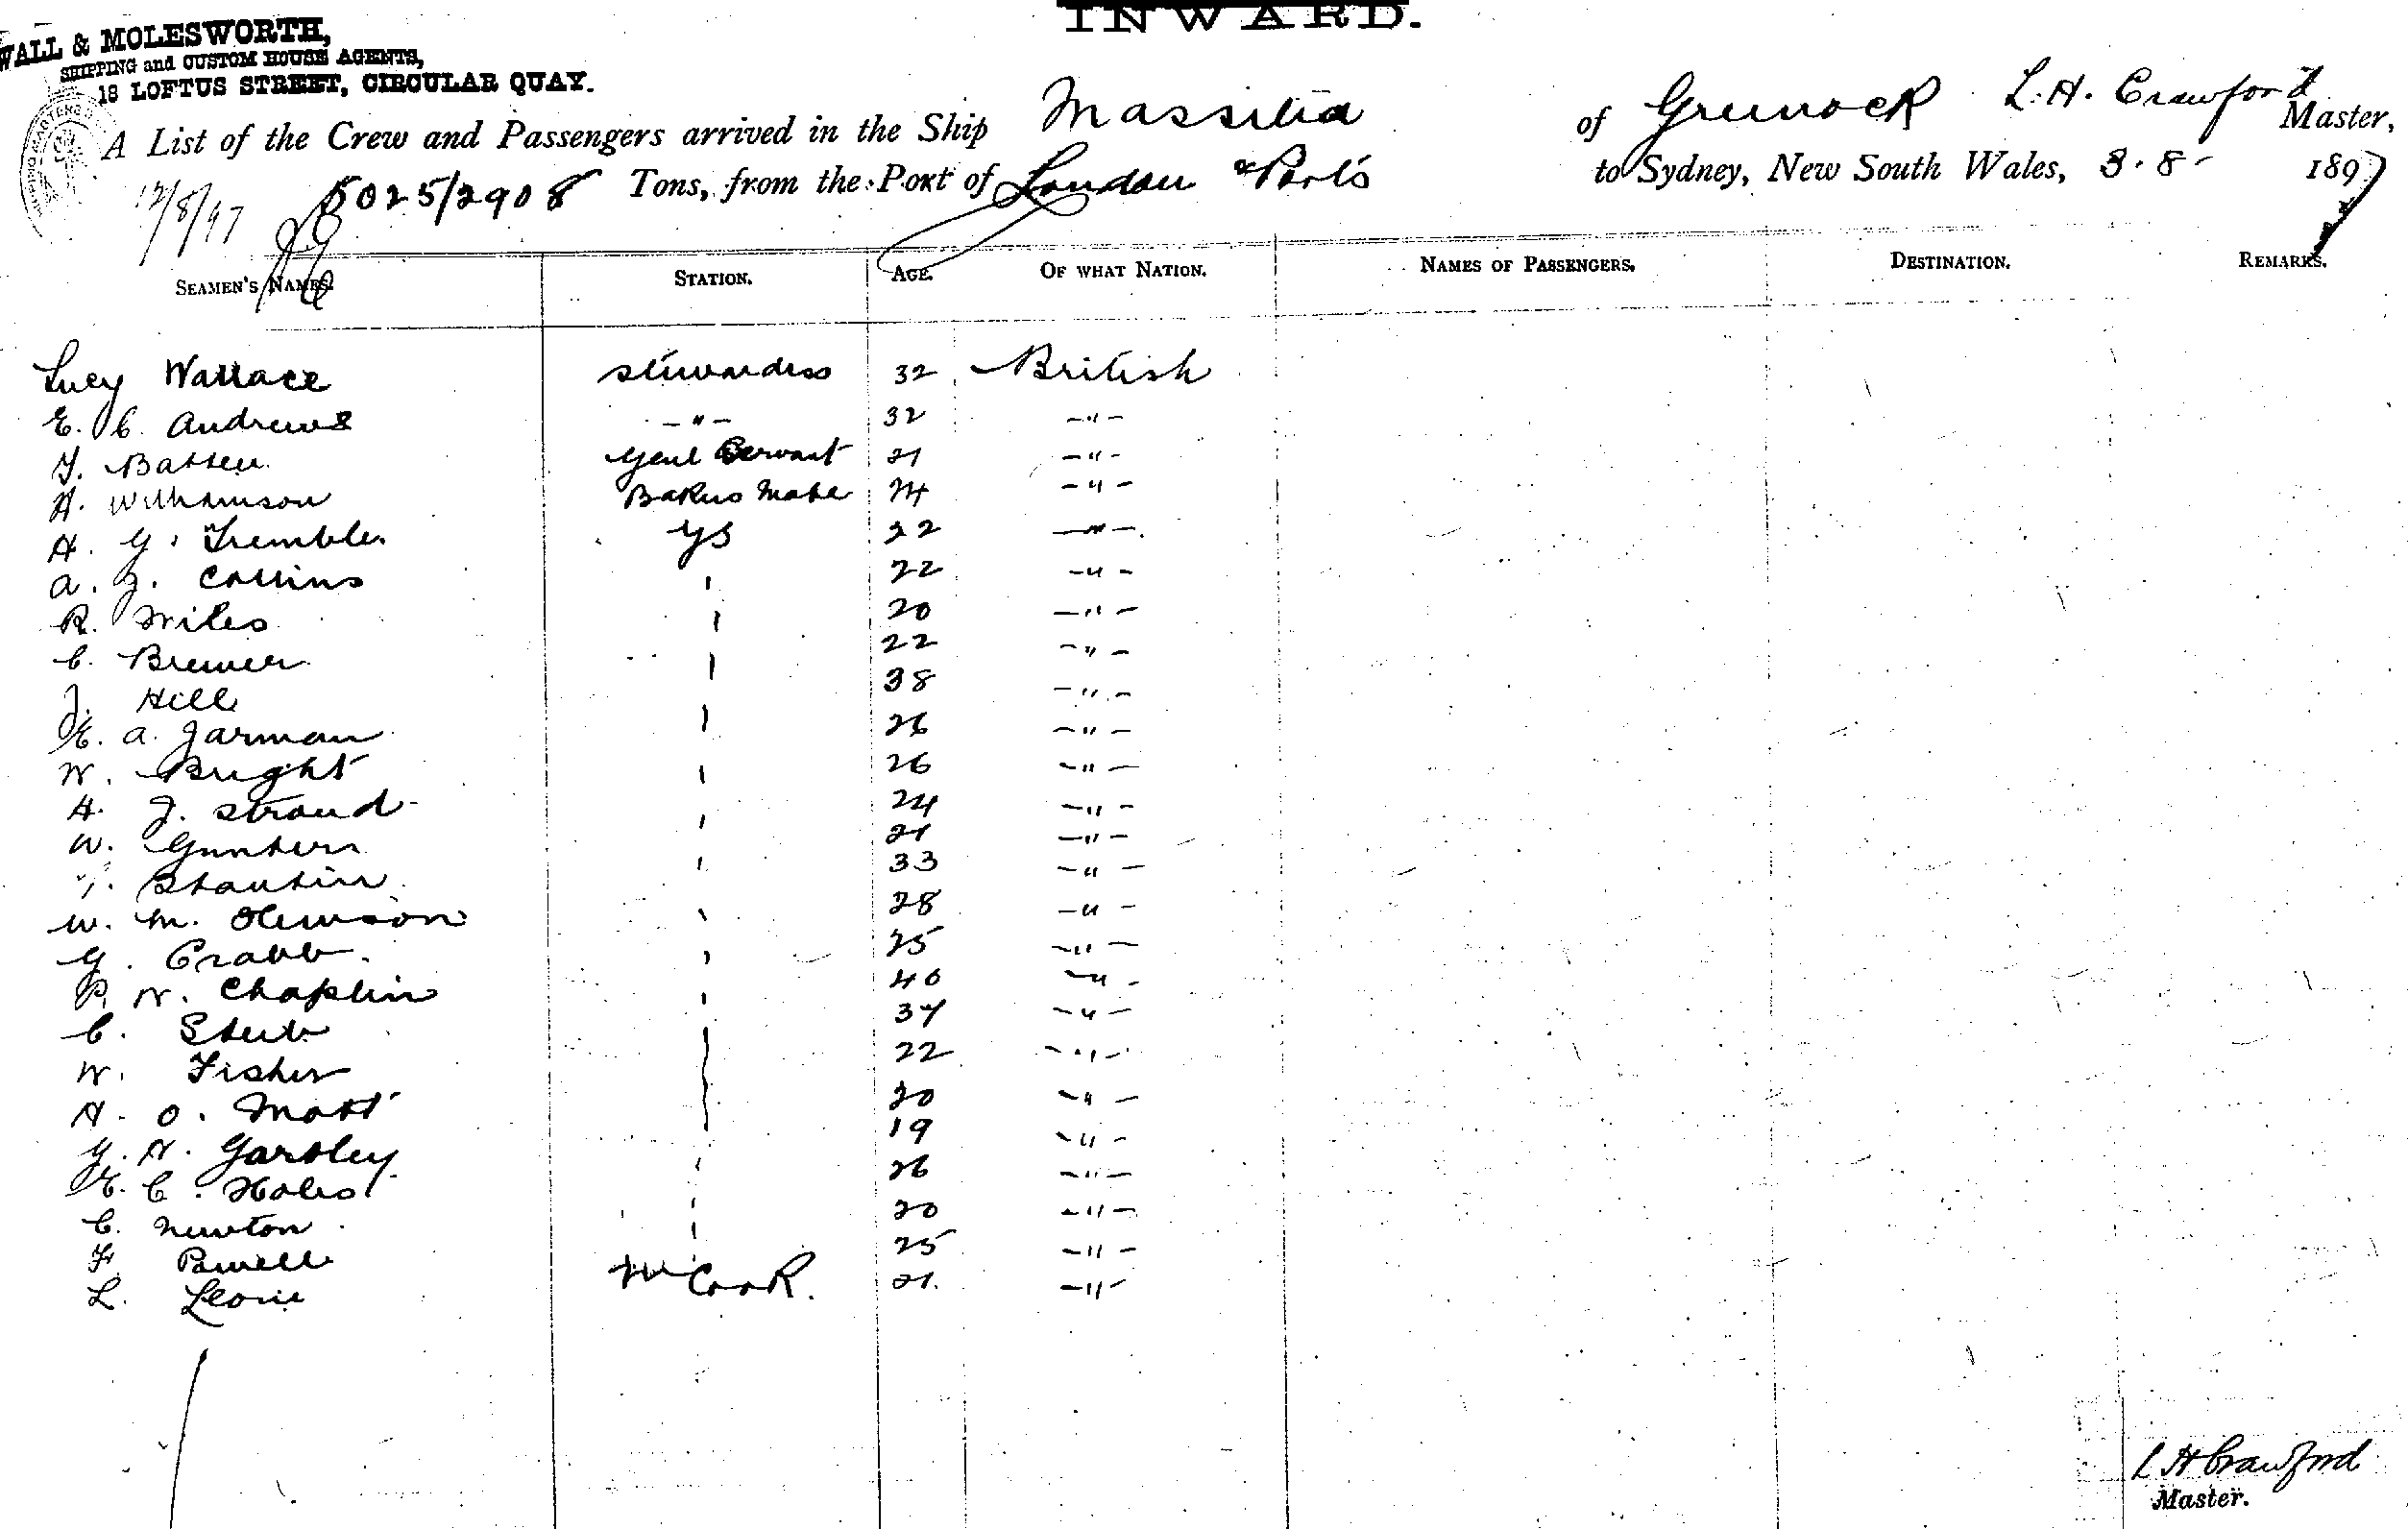 INWARD.
WALL & MOLESWORTH,
SHIPPING and CUSTOM HOUSE AGENTS,
18 LOFTUS STREET, CIRCULAR QUAY.
A List of the Crew and Passengers arrived in the Ship Massilia of Greenock L. H. Crawford Master,
12/8/97 5025/2908 Tons, from the Port of London & Ports to Sydney, New South Wales, 3.8. 1897
SEAMEN'S NAMES. STATION. AGE. OF WHAT NATION. NAMES OF PASSENGERS. DESTINATION. REMARKS.
Lucy Wallace Stewardess 32 British
E. C. Andrews -"- 32 -"-
Batten Genl Servant 21 -"-
H. Williamson Bakers Mate 24 -"-
H. G. Trembler GS 22 -"-
A. J. Collins 22 -"-
R. Miles 20 -"-
C. Brewer 22 -"-
J. Hill 38 -"-
E. A. Jarman 26 -"-
W. Bright 26 -"-
H. J. Stroud 24 -"-
W. Gunters 21 -"-
33 -"-
W. M. 28 -"-
G. Crabb. 25 -"-
P. W. Chaplin 40 -"-
C. 37 -"-
W. Fisher 22 -"-
H. O. Mott 20 -"-
G. H. Yardley 19 -"-
E. C. 26 -"-
C. Newton 20 -"-
F. 25 -"-
L. Cook. 21. -"-
L H Crawford
Master.